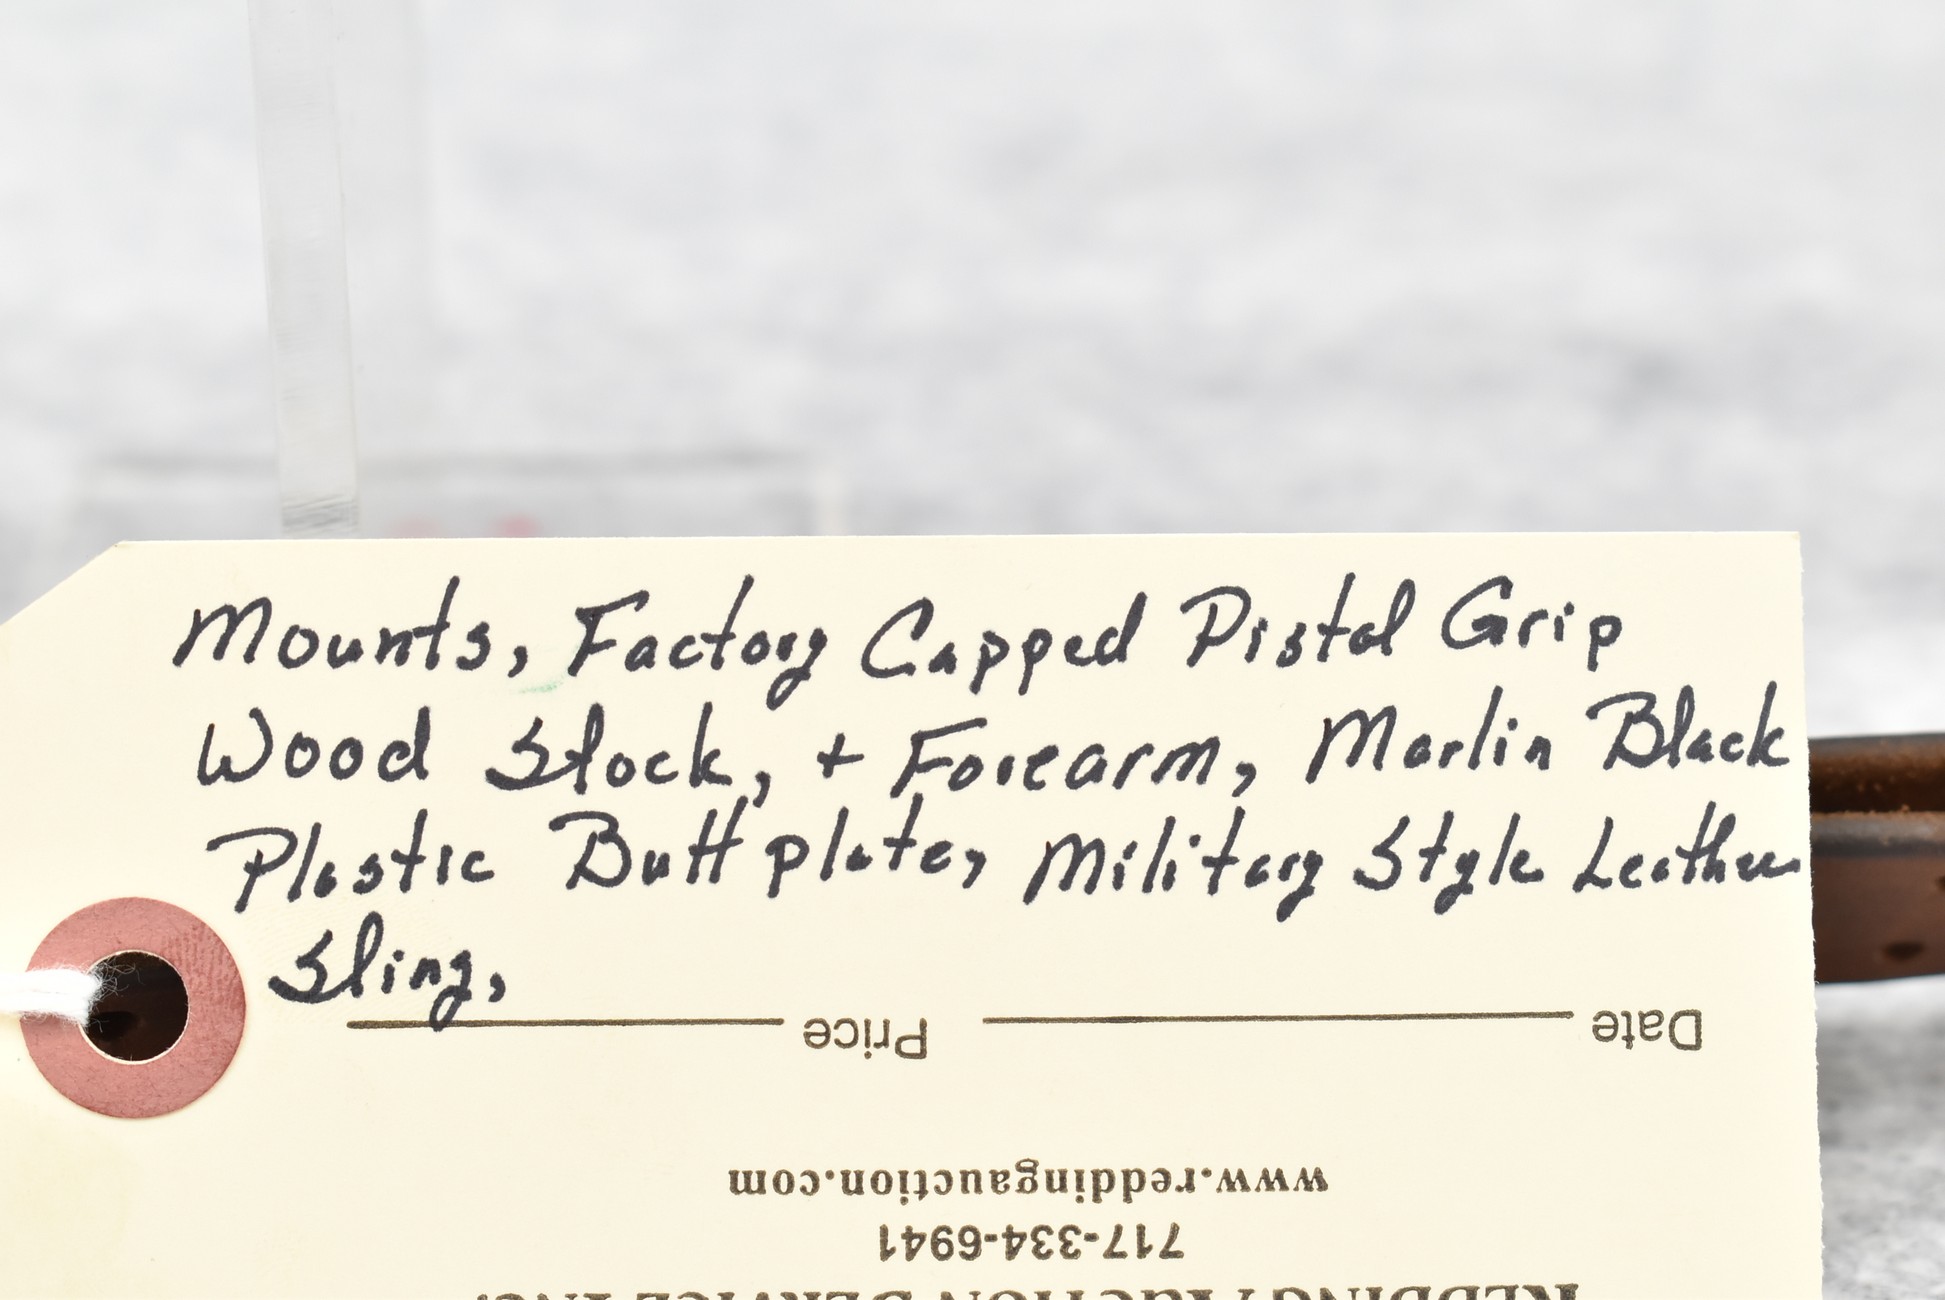 Mounts, Factory Capped Pistol Grip
Wood Stock, + Forearm, Marlin Black
Plastic Butt plate, Military Style Leather
Sling,
Price Date
www.reddingauction.com
717-334-6941
REDDING AUCTION SERVICE INC.